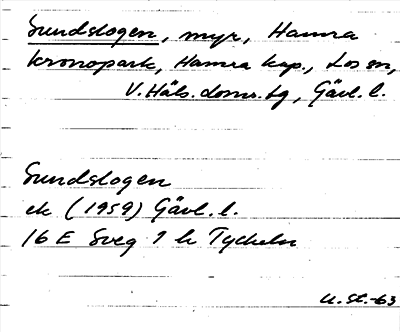 Sundslogen, myr, Hamra
kronopark, Hamra kap., Los sn,
V. Häls. doms.tg, Gävl. l.
Sundslogen
ek (1959) Gävl. l.
16 E Sveg 1 h Tyckeln
U. St.-63